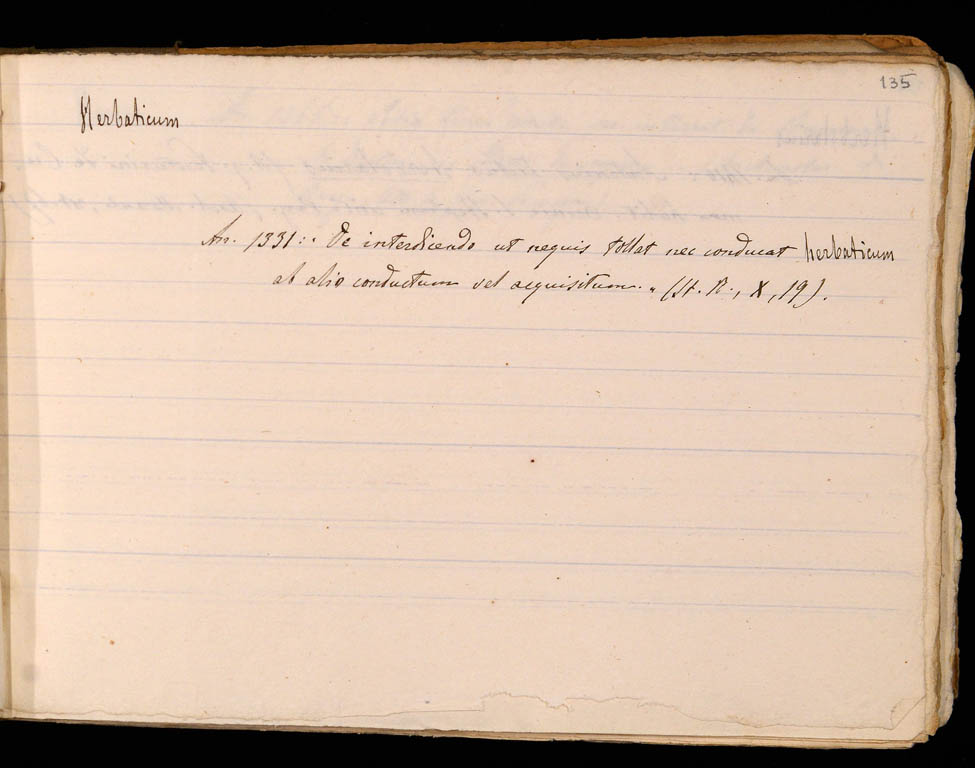 135
Herbaticum
An. 1331: "De interdicendo ut nequis tollat nec conducat herbaticum
ab alio conductum vel acquisitum." (St. R., X, 19).